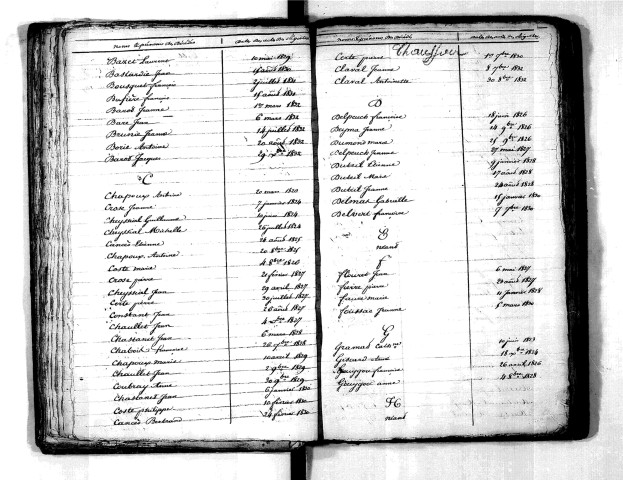 Noms & prénoms des Décédés Dates des actes des Registres
Bazet Laurent 10 mai 1829
Bastardie Jean août 1830
Bousquet françois juillet 1831
Bufière françois 18 août 1831
Barot Jeanne 1er mars 1832
Bare Jean 6 mars 1832
Brunie Jeanne 14 juillet 1832
Borie Antoine 20 août 1832
Barot Jacques 29 1832
C
Chapoux Antoine 20 mars 1820
Crose Jeanne 7 janvier 1824
Cheyssial Guillaume 10 juin 1824
Cheyssial Marselle 26 juillet 1824
Cancès Etienne 26 août 1825
Chapoux Antoine 20 8bre 1825
Coste marie 4 8bre 1826
Crose pierre 21 février 1827
Cheyssial Jean 29 avril 1827
Coste pierre 30 juillet 1827
Constant Jean 26 août 1827
Chaullet Jean 4 1827
Chassant Jean 6 mars 1828
Chaboit françoise 26 7bre 1828
Chapoux marie 10 avril 1829
Chaullet Jean 2 9bre 1829
Coubray Anne 30 9bre 1829
Chastanet Jean 6 janvier 1830
Coste philippe 10 février 1830
Cancès Bertrand 24 février 1830
Noms & prénoms des Décédés Dates des actes des Registres
Coste pierre Chaussier 1er 7bre 1830
Claval Jeanne 8 7bre 1832
Claval Antoinette 30 8bre 1832
D
Delpeuch françoise 18 juin 1826
Deyma Jeanne 24 9bre 1826
Dumond marie 25 9bre 1826
Delpeuch Jeanne 27 mai 1827
Buteil Etienne 9 janvier 1828
Buteil Marie 17 août 1828
Buteil Jeanne 24 août 1828
Delmas 18 janvier 1830
Delvert françoise 7 7bre 1830
E
néant
F
flouret Jean 6 mai 1827
faure pierre 20 août 1827
faure marie 11 janvier 1828
foussac Jeanne 8 mars 1830
G
Gramat Cathne 10 juin 1823
18 xbre 1824
Goeyzou françoise 26 août 1826
Goeyzou anne 4 8bre 1828
H
néant